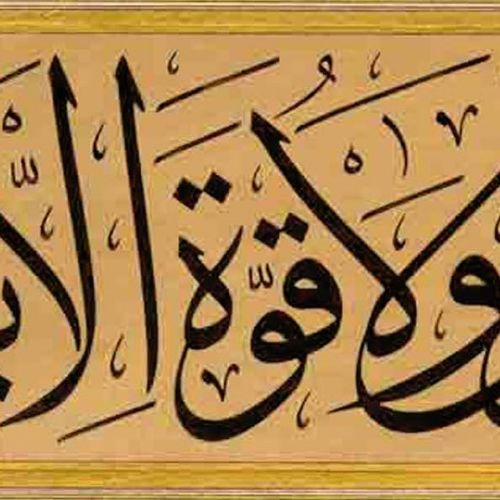 ولا قوة إلا